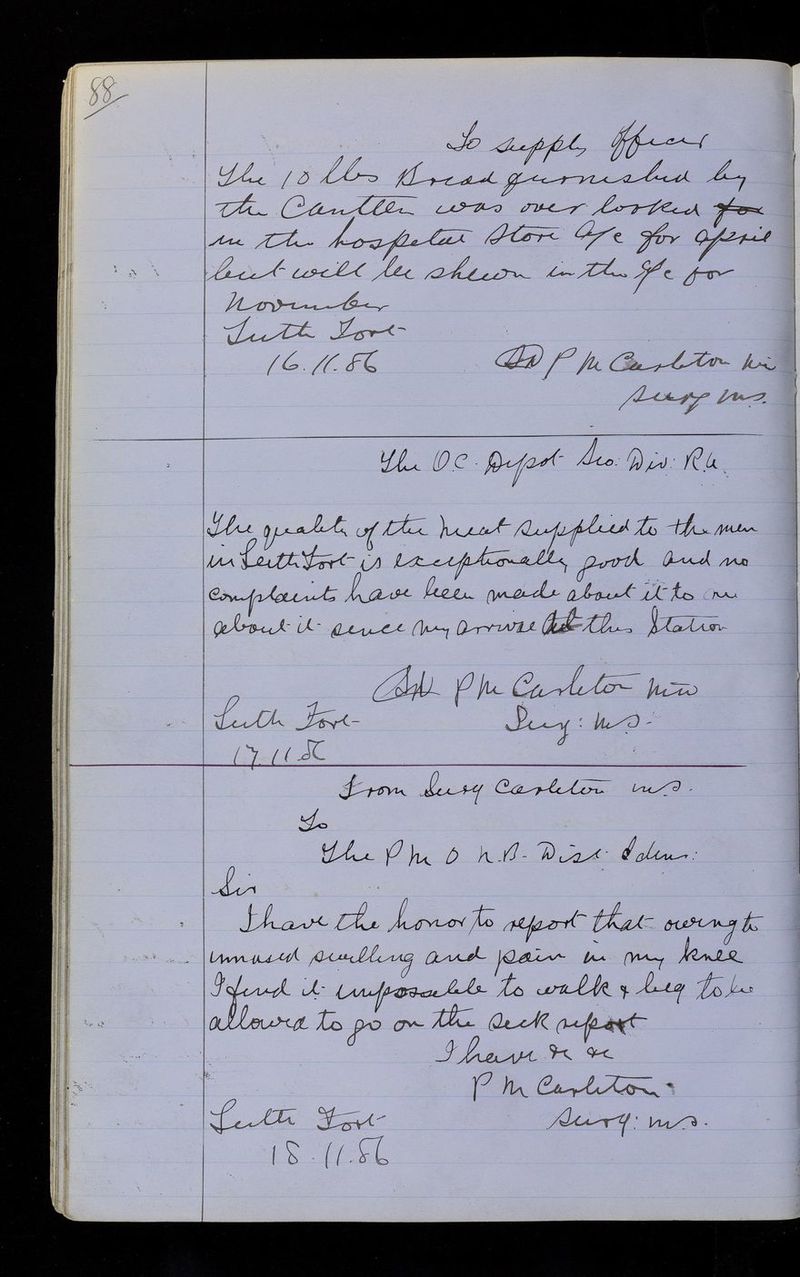 88
To supply Officer
The 10 lbs Bread furnished by
the Canteen was over looked for
in the hospital Store A/c for April
but will be shewn in the A/c for
November
Leith Fort
16.11.86 Sd P M Carleton
Surg M.S.
The O.C. Depot Sco: Div: R.A.
The quality of the meat supplied to the men
in Leith Fort is exceptionally good and no
complaints have been made about it to me
about it since my arrival at this Station
Sd P M Carleton
Leith Fort Surg: M.S.
17.11.86
From Surg Carleton M.S.
To
The P M O N.B. Dist Edin:
Sir
I have the honor to report that owing to
swelling and pain in my knee
I find it impossible to walk & beg to be
allowed to go on the sick report
I have &c &c
P M Carleton
Leith Fort Surg: M.S.
18.11.86